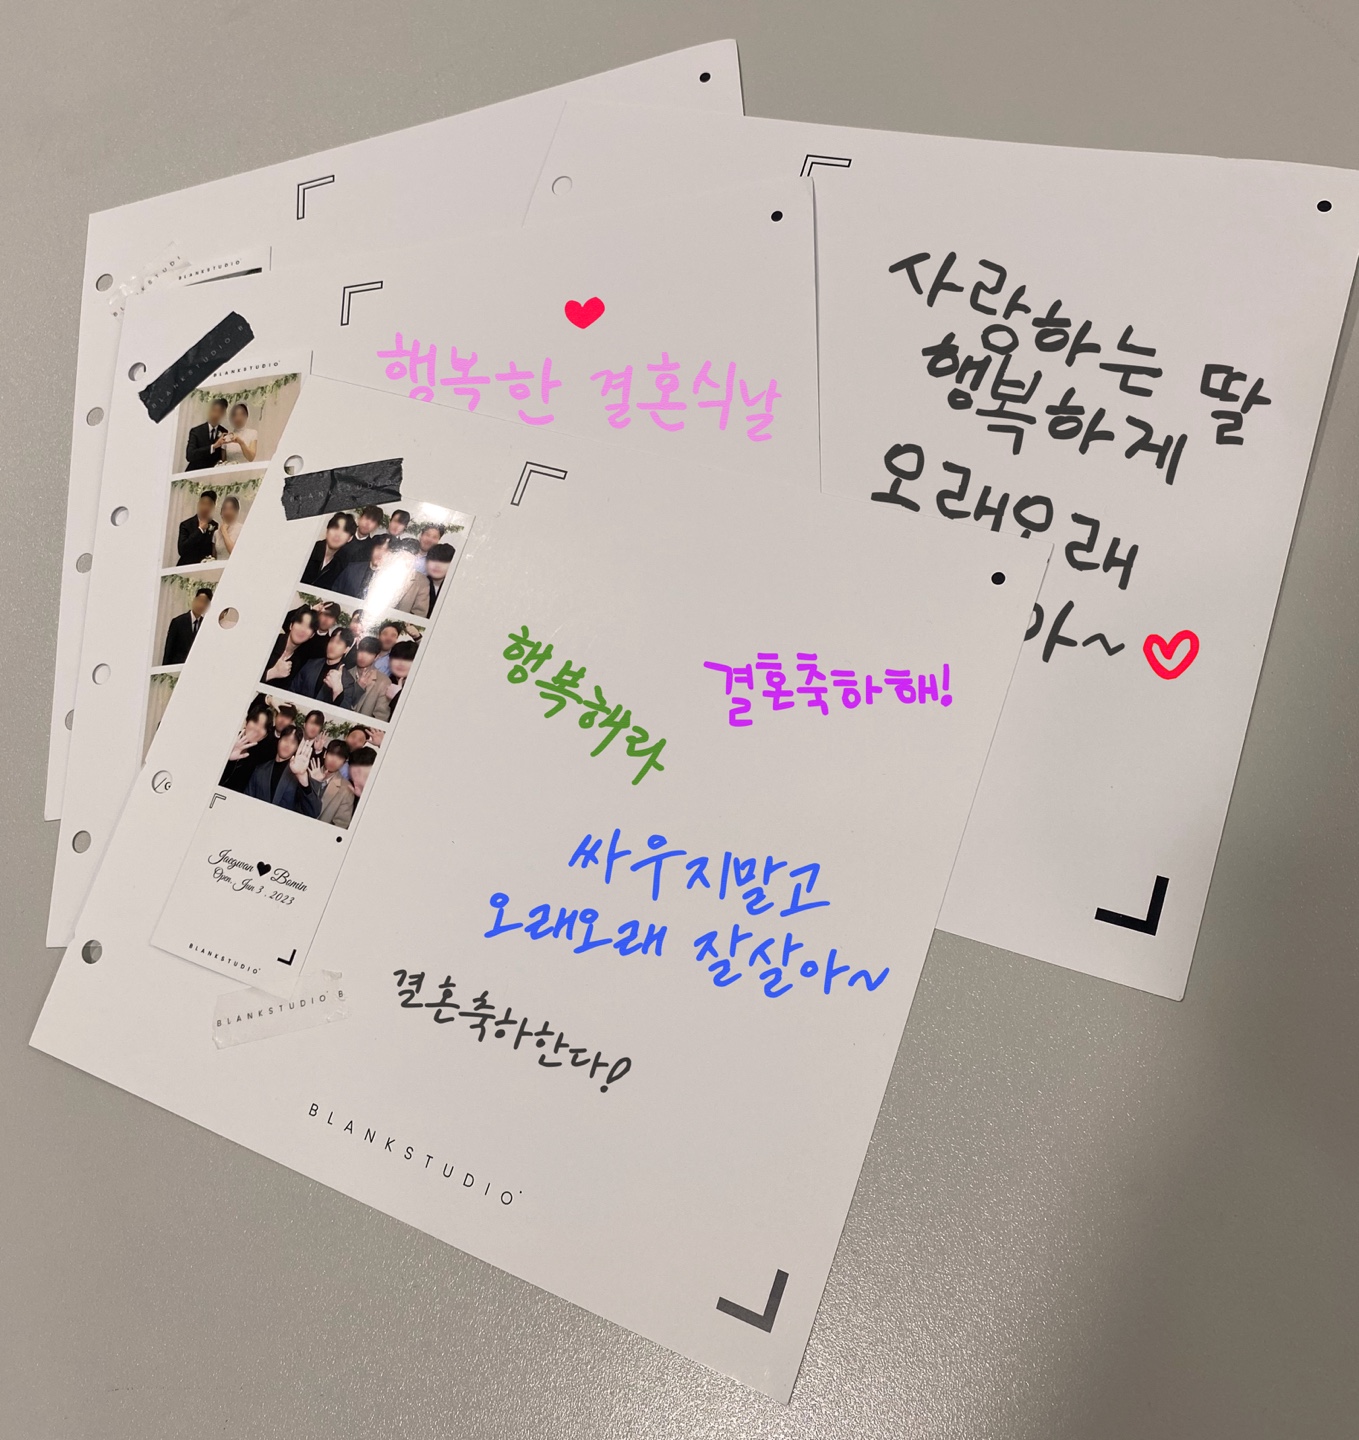 BLANKSTUDIO
사랑하는 딸
행복하게
오래오래
아~
행복한 결혼식날
BLANKSTUDIO B
BLANKSTUDIO
행복해라
결혼축하해!
싸우지말고
오래오래 잘살아~
결혼축하한다!
Jaegwan Bomin
Open. Jun 3. 2023
BLANKSTUDIO
BLANKSTUDIO B
BLANKSTUDIO